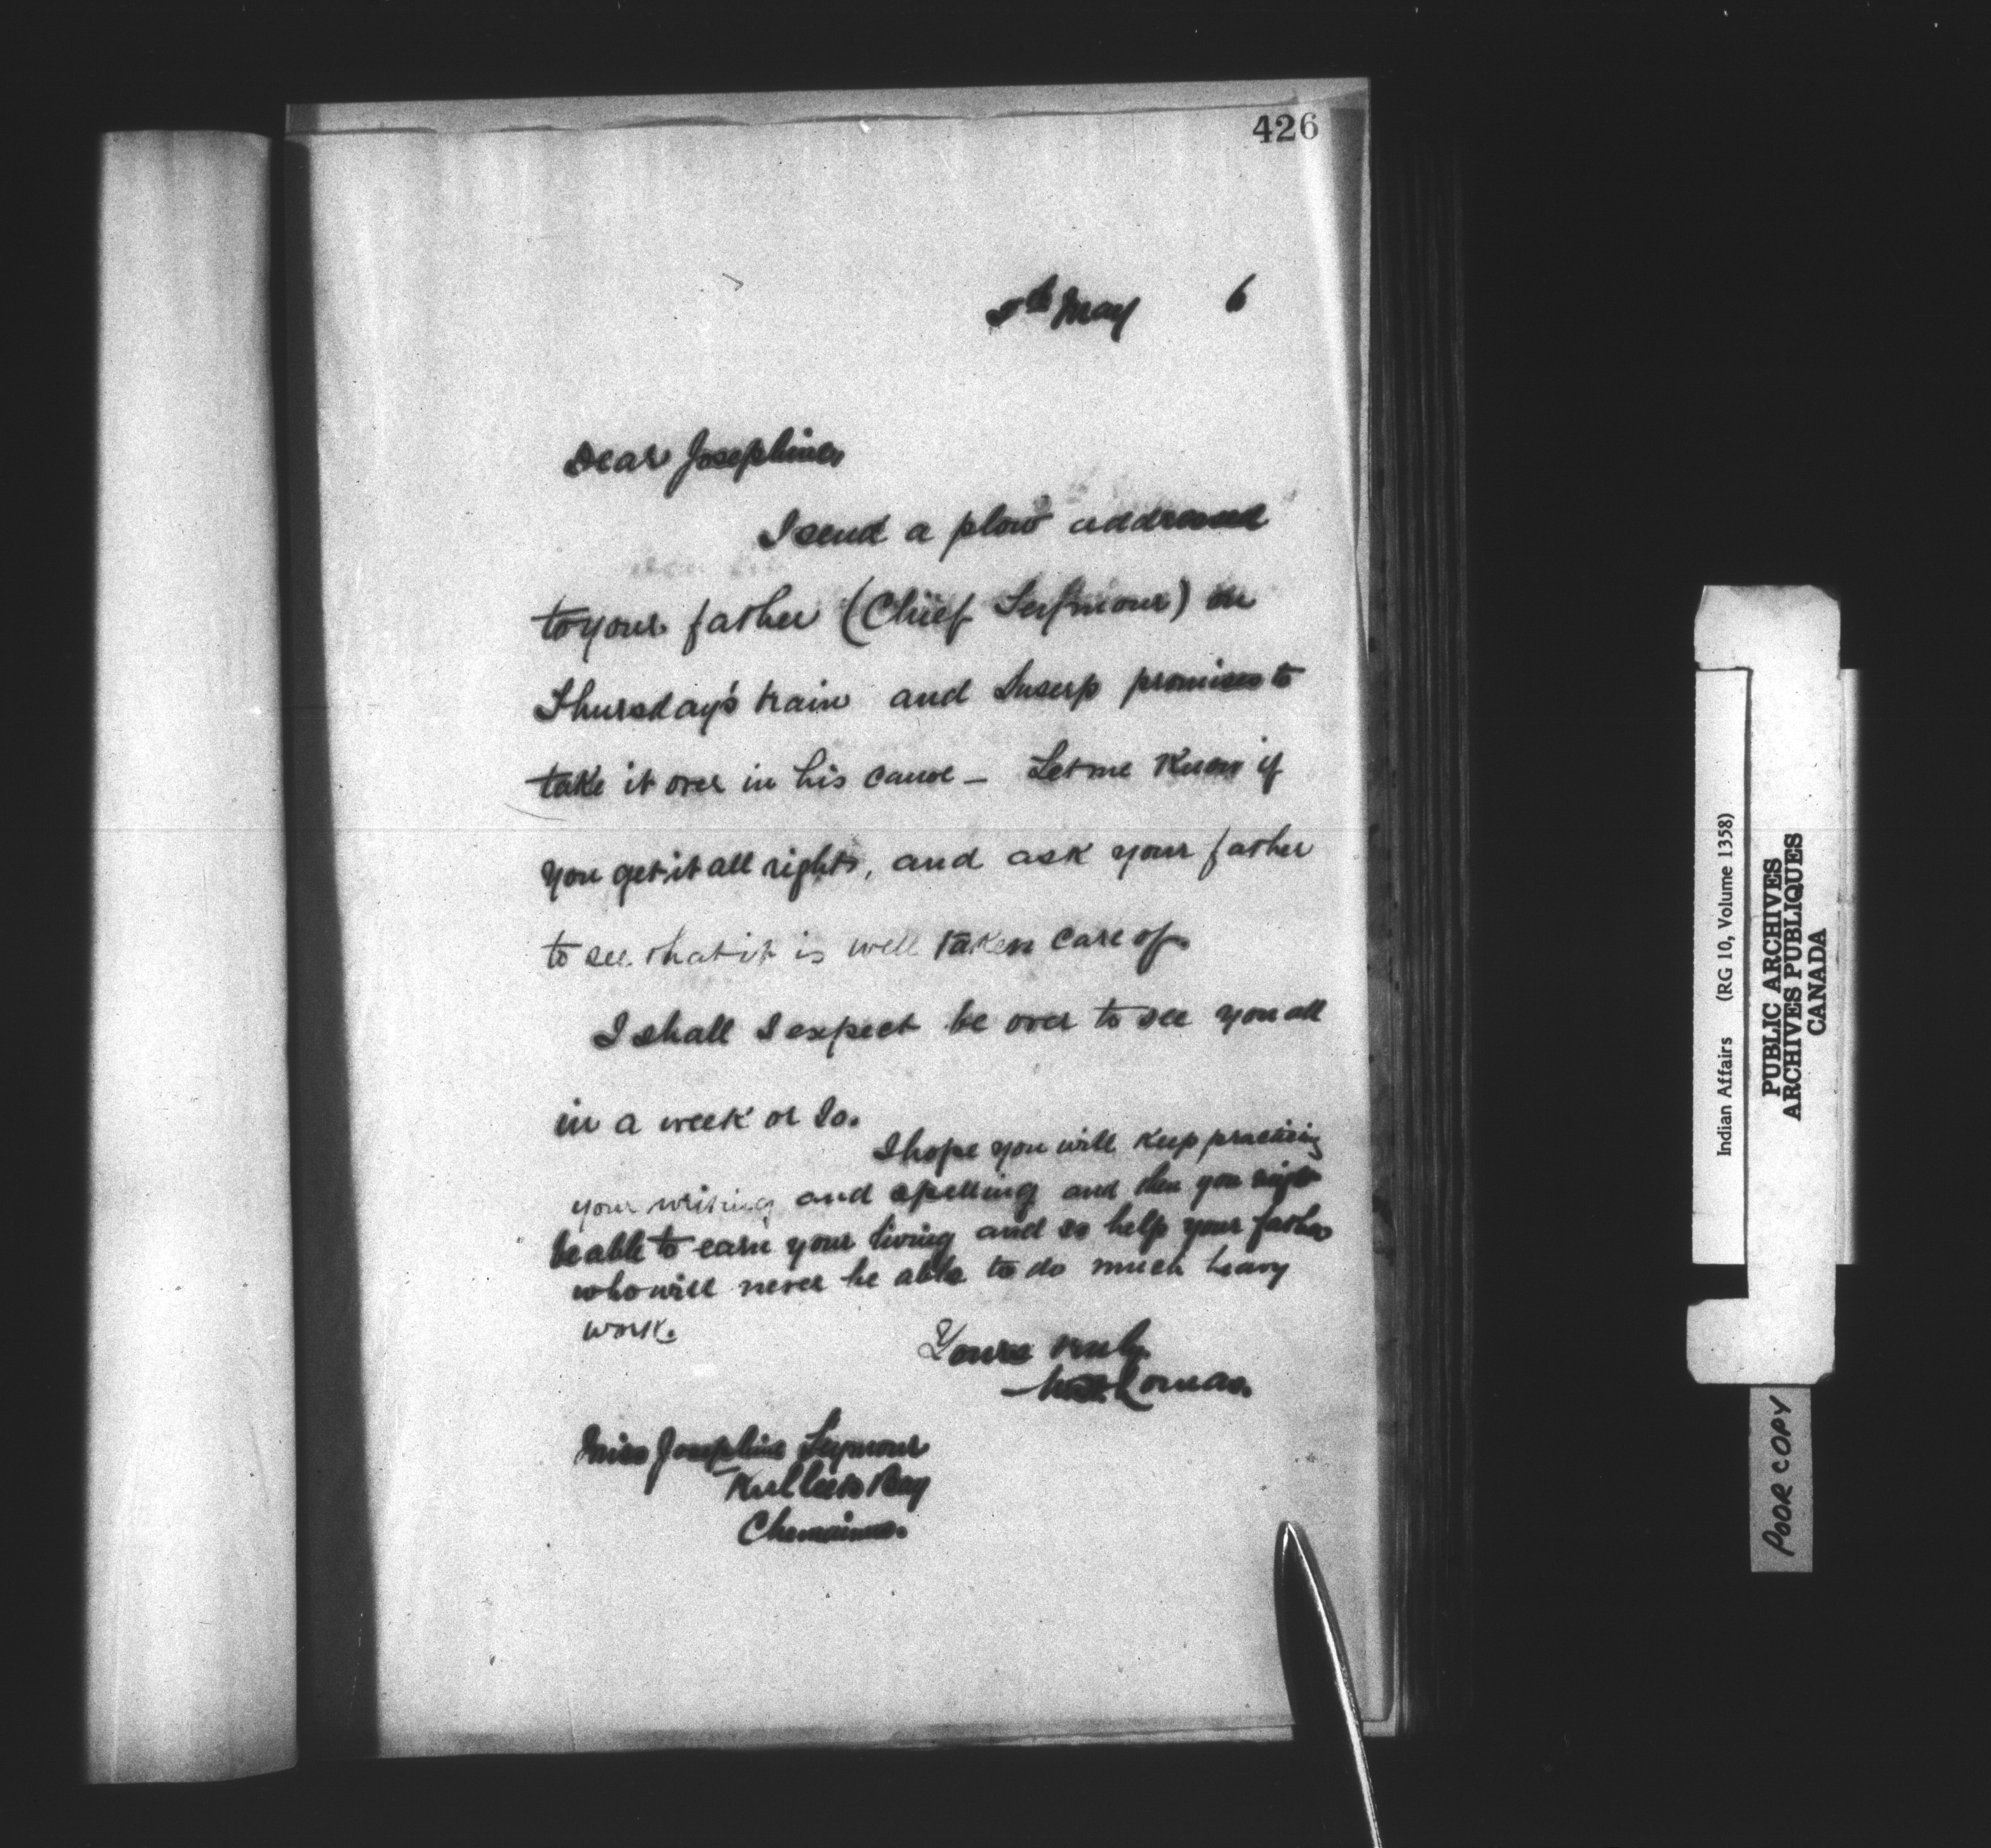 426
5th May 6
Dear Josephine,
I send a plow addressed
to your father (Chief Seymour) on
Thursday's train and Suserp promises to
take it over in his canoe — Let me know if
you get it all right, and ask your father
to see that it is well taken care of.
I shall I expect be over to see you all
in a week or so.
I hope you will keep practicing
your writing and spelling and then you might
be able to earn your living and so help your father
who will never be able to do much heavy
work.
Yours truly
Lomas.
Miss Josephine Seymour
Bay
Chemainus.
Indian Affairs (RG 10, Volume 1358)
PUBLIC ARCHIVES
ARCHIVES PUBLIQUES
CANADA
POOR COPY